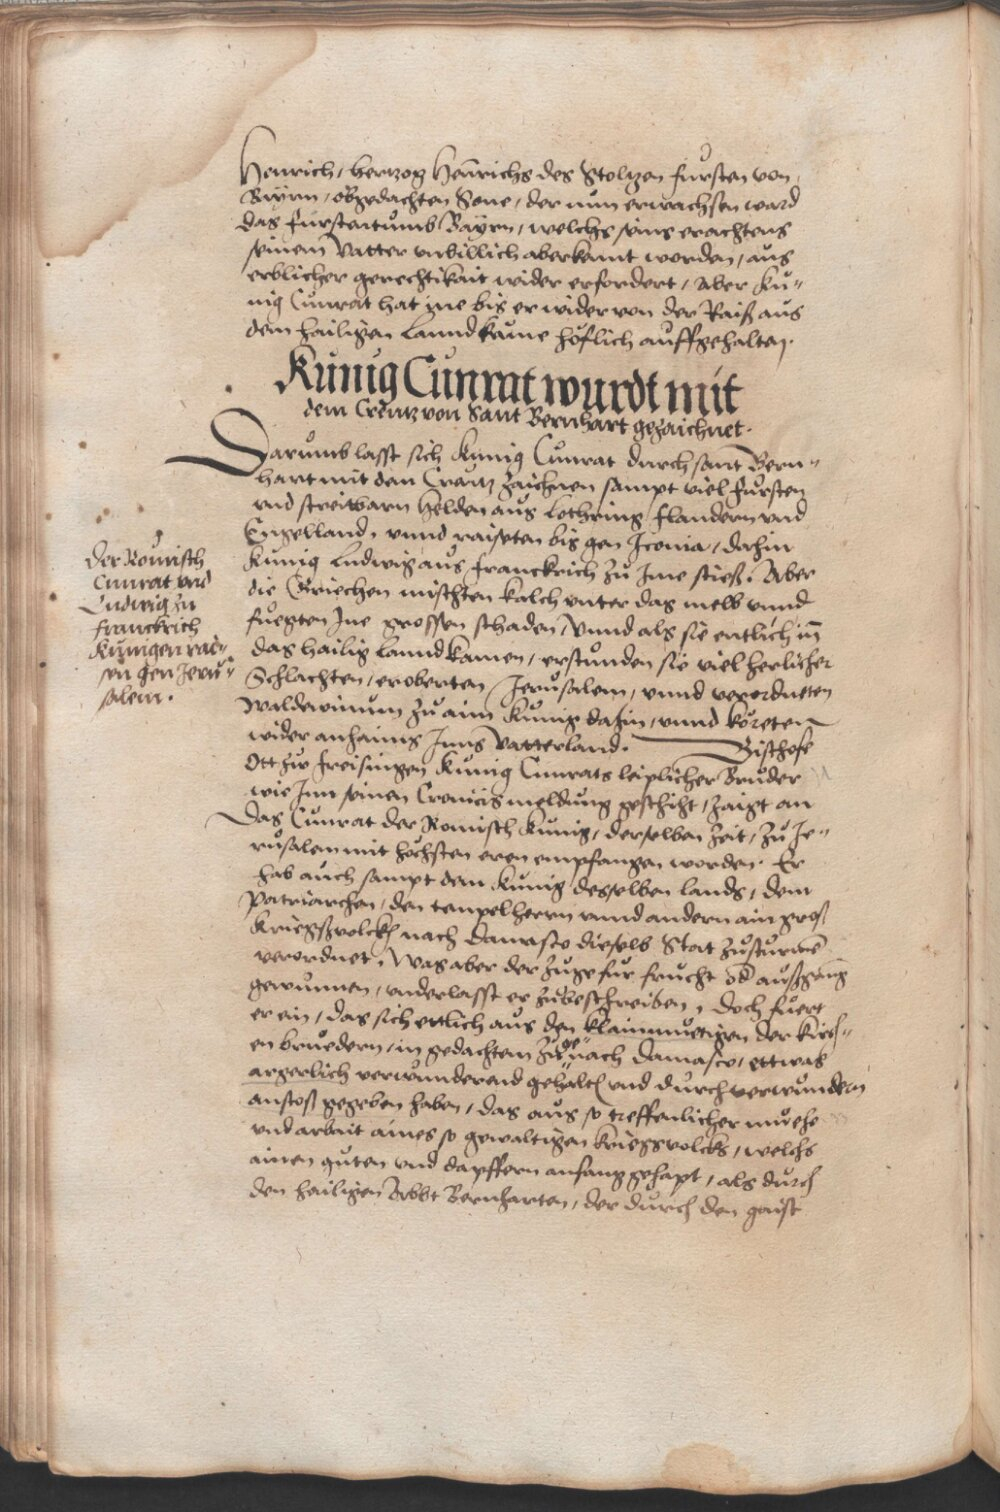 Henrich, hertzog Henrichs des Stoltzen fürsten von
Bayrn, obgedachten Sone, der nun erwachsen ward
das fürstentumb Bayrn, welchs seins erachtens
seinem Vatter vnbillich aberkannt worden, aus
erblicher gerechtikait wider erfordert, Aber Ku=
nig Cunrat hat ine bis er wider von der Raiß aus
dem hailigen Lannd kame höflich auffgehalten.
Kunig Cunrat wurdt mit
dem Creutz von Sant Bernhart gezaichnet.
Darumb lasst sich Kunig Cunrat durch sant Bern=
hart mit dem Creutz zaichnen sampt viel fursten
vnd streitbarn helden aus Lothring, flandern vnd
Engelland, vnnd raiseten bis gen Iconia, dahin
Kunig Ludwig aus franckrich zu Ime stieß. Aber
die Griechen mischten kalch vnter das melb vnnd
fuegten Ine grossen schaden, Vnnd als sie entlich in
das hailig Lannd kamen, erstunden sie viel herlicher
Schlachten, eroberten Jerusalem, vnnd verordneten
Waldewinum zu aim Kunig dahin, vnnd köreten
wider anhaims Inns Vatterland. Bischofe
Ott zu freisingen Kunig Cunrats leiplicher Bruder
wie Inn seinen Cronicis meldung geschiht, zaigt an
Das Cunrat der Romisch Kunig, derselben zeit, zu Je=
rusalem mit höchsten eren empfangen worden. Er
hab auch sampt dem Kunig desselben lands, dem
Patriarchen, den tempelherrn vnnd andern ain groß
Kriegßvolck nach Damasco dieselb Stat zusturme
verordnet, Was aber der zuge fur frucht od außgang
gewunnen, vnderlasst er zubeschreiben, Doch fuert
er ein, das sich ettlich aus den klainmuetigen der Kirch=
en bruedern, in gedachtem zug nach Damasco, ettwas
argerlich verwunderend gehalte vnd durch verwundern
anstoß gegeben haben, das aus so treffenlicher muehe
vnd arbait aines so gewaltigen Kriegsvolcks, welchs
ainen guten vnd dapffern anfang gehapt, als durch
den hailigen Abbt Bernharten, der durch den gaist
Der Romisch
Cunrat vnd
Ludwig zu
franckrich
Kunigen rai=
sen gen Jeru=
salem.